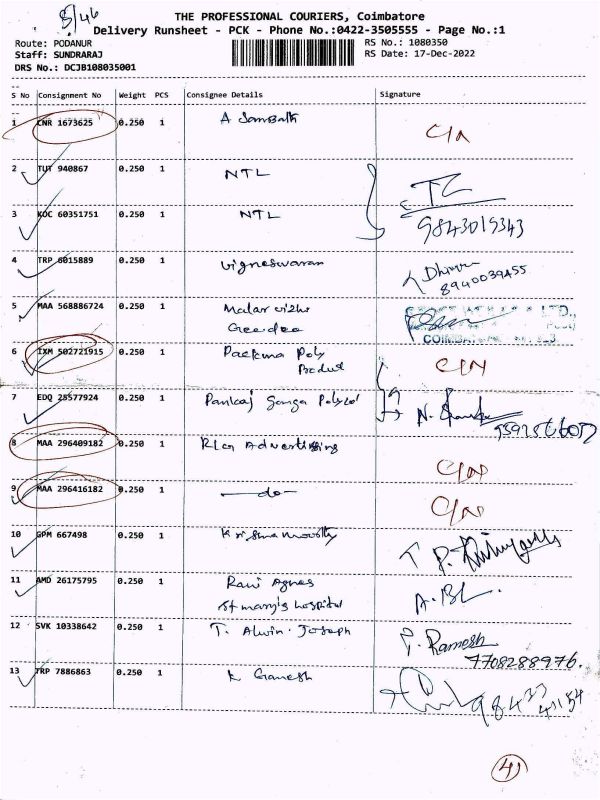 5/46
THE PROFESSIONAL COURIERS, Coimbatore
Delivery Runsheet - PCK - Phone No.:0422-3505555 - Page No.:1
Route: PODANUR
RS No.: 1080350
Staff: SUNDRARAJ
RS Date: 17-Dec-2022
DRS No.: DCJB108035001
S No Consignment No Weight PCS Consignee Details Signature
1 CNR 1673625 0.250 1 A Sambath
2 TUT 940867 0.250 1 NTL
3 KOC 60351751 0.250 1 NTL
9843019343
4 TRP 6015889 0.250 1 Vigneswaran
8940039455
5 MAA 568886724 0.250 1 Malar vizhi
COIMBA
6 IXM 502721915 0.250 1 Poly
Product
7 EDQ 25577924 0.250 1 Pankaj Ganga
8 MAA 296409182 0.250 1 Advertising
9 MAA 296416182 0.250 1 -do-
10 GPM 667498 0.250 1 Krishnamoorthy
11 AMD 26175795 0.250 1 Ravi Agnes A.BL
St mary's hospital
12 SVK 10338642 0.250 1 T. Alwin. Joseph P. Ramesh
7708288976.
13 TRP 7886863 0.250 1 K Ganesh
4)